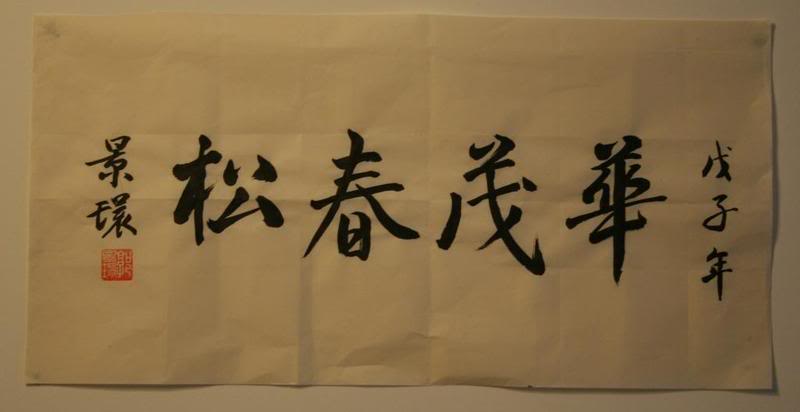 戊子年
華茂春松
景環